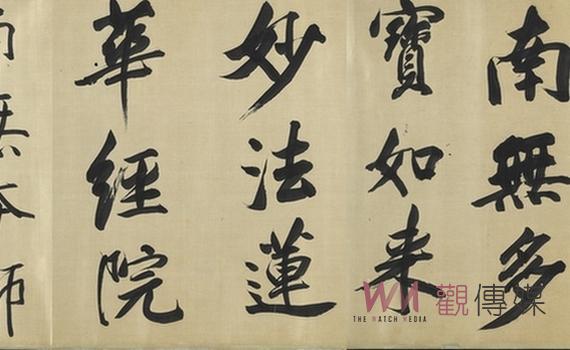 南無多
寶如來
妙法蓮
華經院
南無本師
觀傳媒
THE WATCH MEDIA